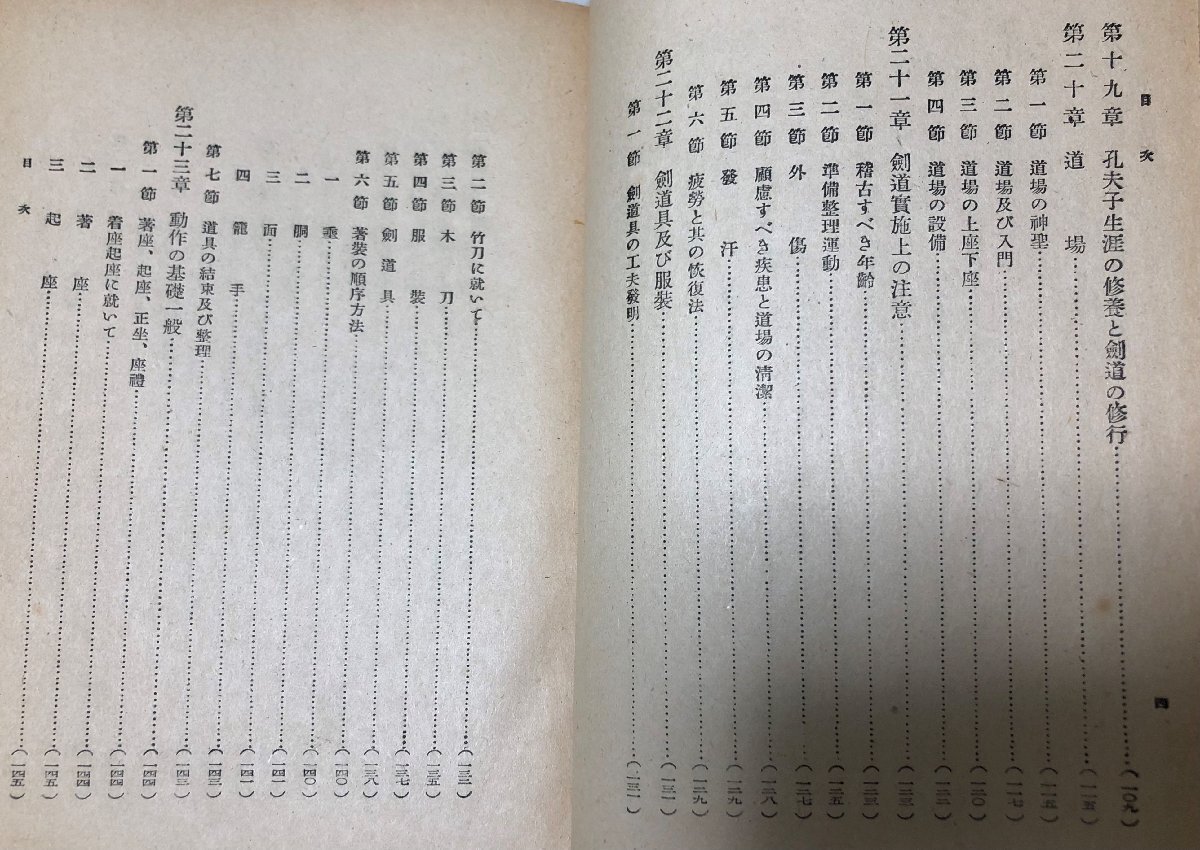 目次
第十九章 孔夫子生涯の修養と劍道の修行……(一〇九)
第二十章 道場……(一一五)
第一節 道場の神聖……(一一五)
第二節 道場及び入門……(一一七)
第三節 道場の上座下座……(一二〇)
第四節 道場の設備……(一二二)
第二十一章 劍道實施上の注意……(一二三)
第一節 稽古すべき年齡……(一二三)
第二節 準備整理運動……(一二五)
第三節 外傷……(一二七)
第四節 顧慮すべき疾患と道場の淸潔……(一二八)
第五節 發汗……(一二九)
第六節 疲勞と其の恢復法……(一二九)
第二十二章 劍道具及び服裝……(一三一)
第一節 劍道具の工夫發明……(一三一)
四
第二節 竹刀に就いて……(一三二)
第三節 木刀……(一三五)
第四節 服裝……(一三七)
第五節 劍道具……(一三八)
第六節 著裝の順序方法……(一四〇)
一 垂……(一四〇)
二 胴……(一四一)
三 面……(一四一)
四 籠手……(一四三)
第七節 道具の結束及び整理……(一四三)
第二十三章 動作の基礎一般……(一四四)
第一節 著座、起座、正坐、座禮……(一四四)
一 着座起座に就いて……(一四四)
二 著座……(一四五)
三 起座……(一四五)
目次